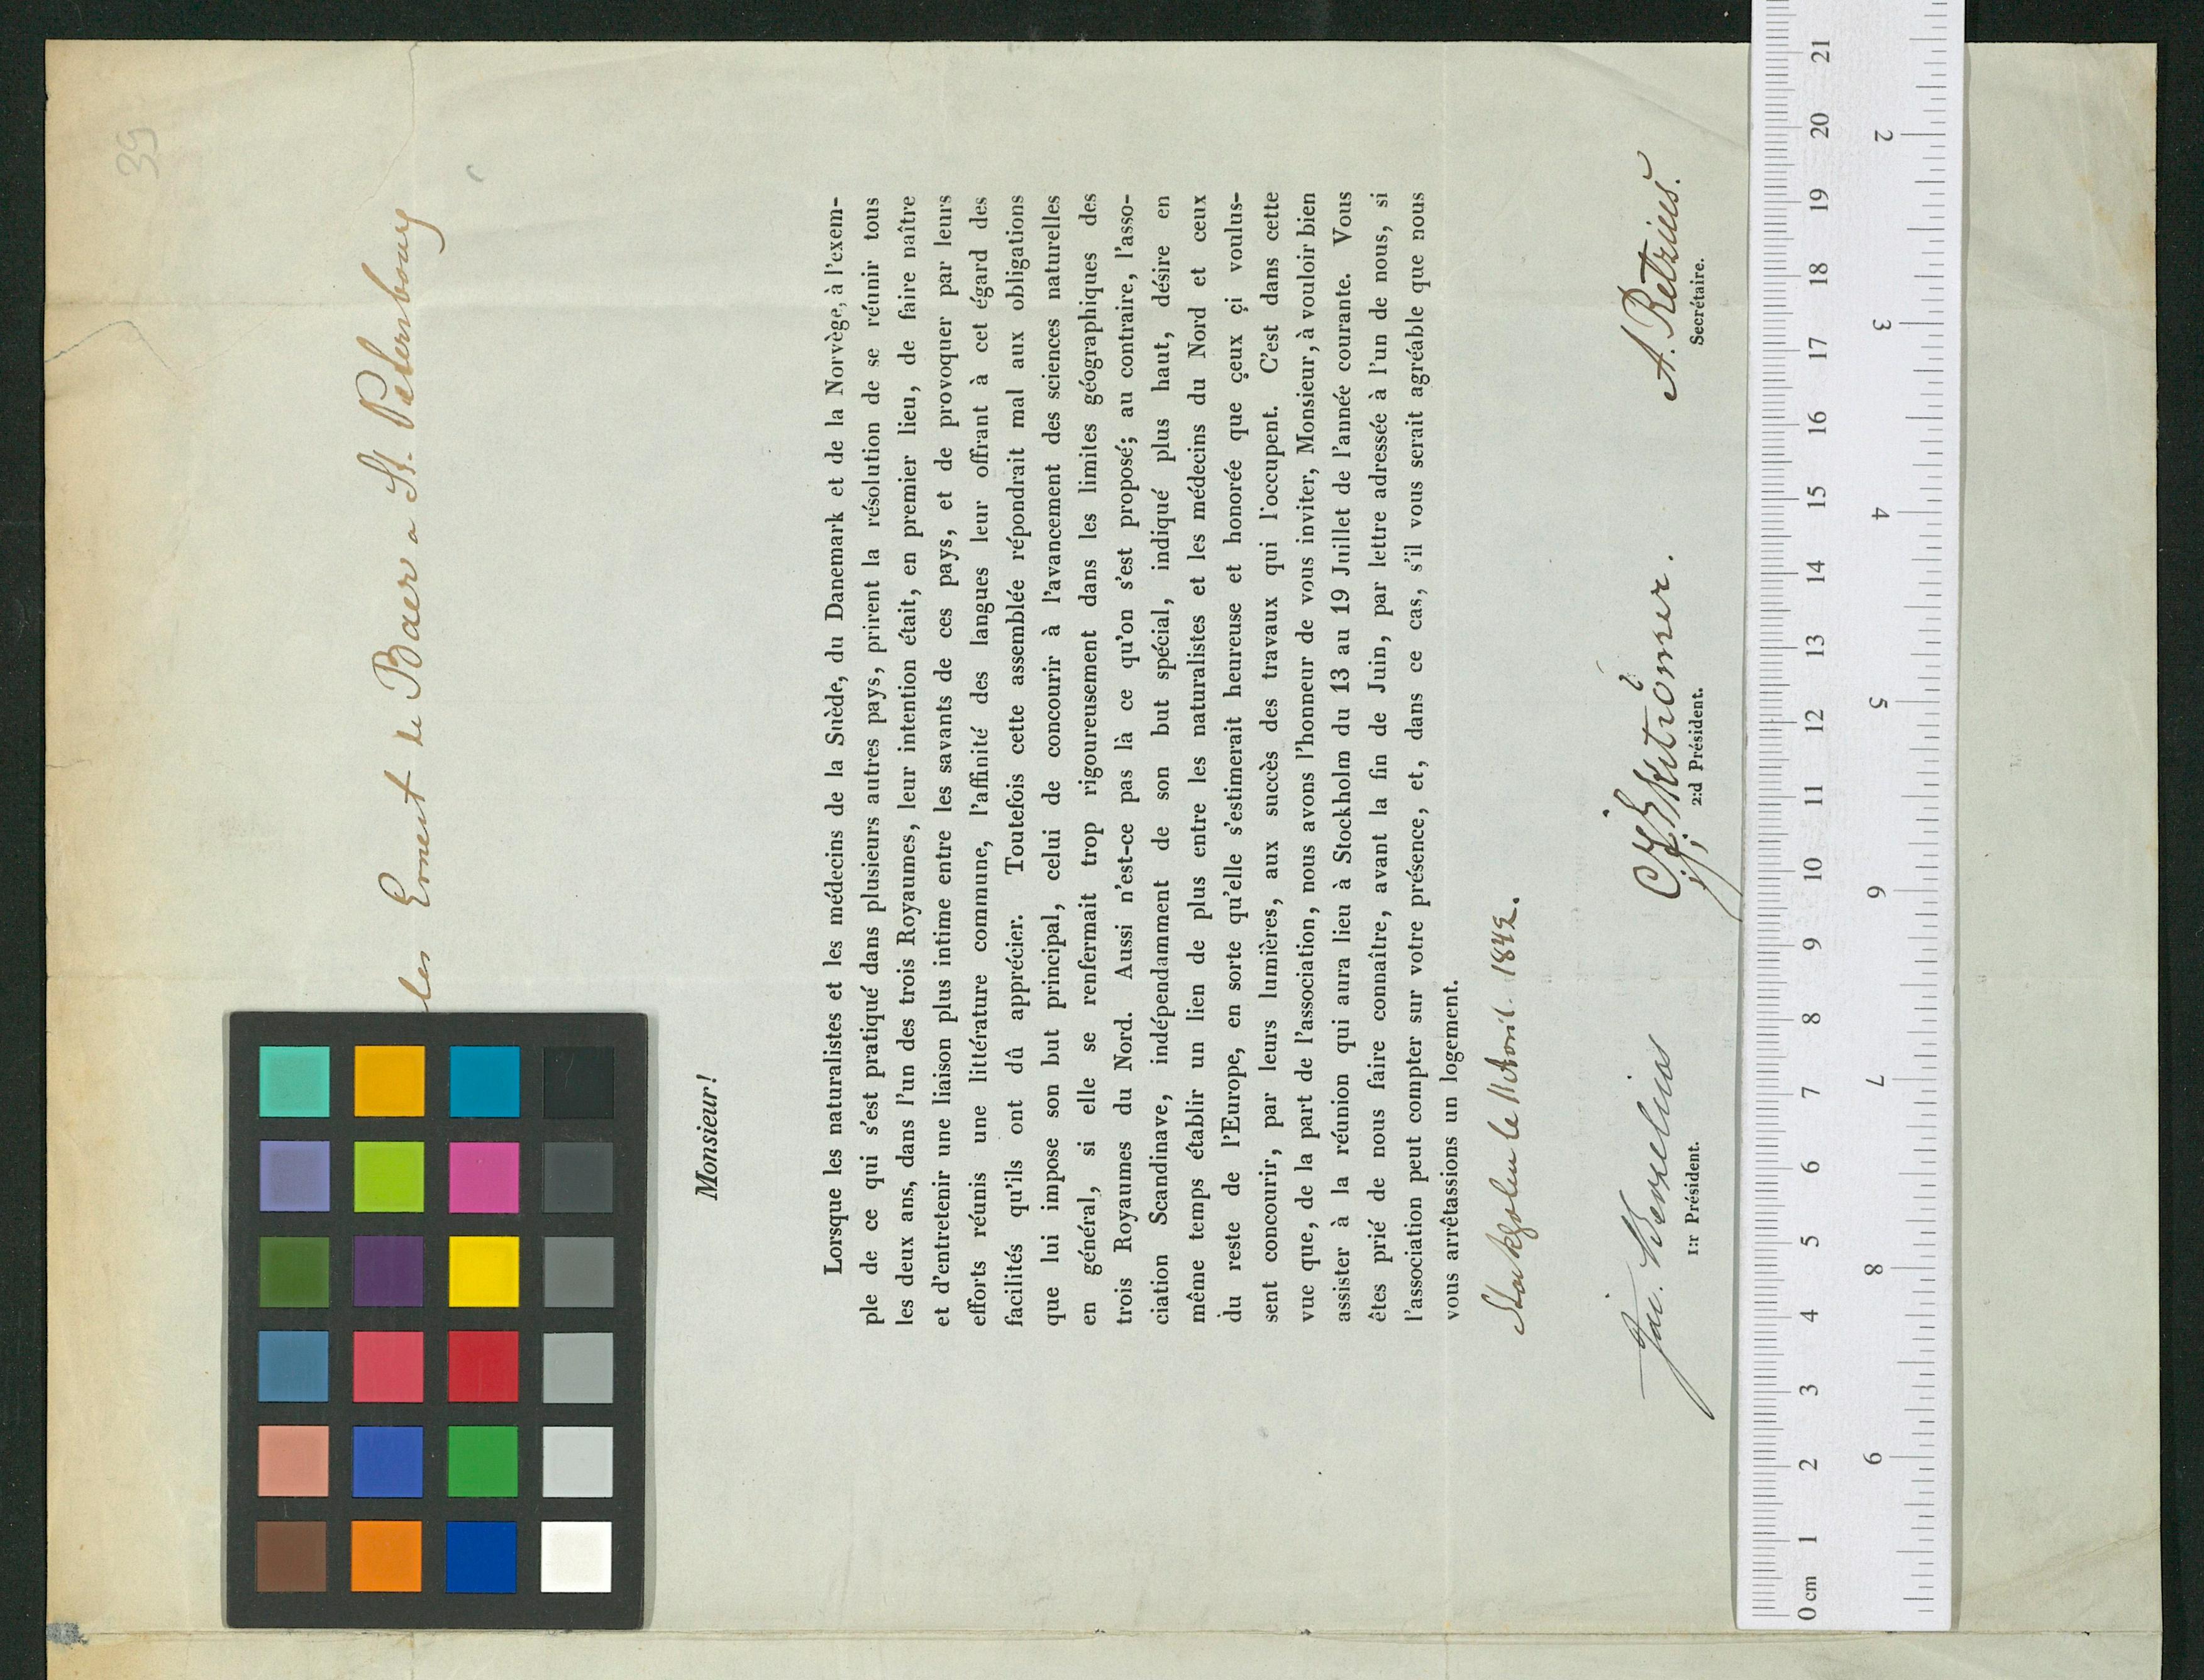 39
les Ernest de Baer a St. Petersbourg
Monsieur!
Lorsque les naturalistes et les médecins de la Suède, du Danemark et de la Norvège, à l'exem-
ple de ce qui s'est pratiqué dans plusieurs autres pays, prirent la résolution de se réunir tous
les deux ans, dans l'un des trois Royaumes, leur intention était, en premier lieu, de faire naître
et d'entretenir une liaison plus intime entre les savants de ces pays, et de provoquer par leurs
efforts réunis une littérature commune, l'affinité des langues leur offrant à cet égard des
facilités qu'ils ont dû apprécier. Toutefois cette assemblée répondrait mal aux obligations
que lui impose son but principal, celui de concourir à l'avancement des sciences naturelles
en général, si elle se renfermait trop rigoureusement dans les limites géographiques des
trois Royaumes du Nord. Aussi n'est-ce pas là ce qu'on s'est proposé; au contraire, l'asso-
ciation Scandinave, indépendamment de son but spécial, indiqué plus haut, désire en
même temps établir un lien de plus entre les naturalistes et les médecins du Nord et ceux
du reste de l'Europe, en sorte qu'elle s'estimerait heureuse et honorée que çeux çi voulus-
sent concourir, par leurs lumières, aux succès des travaux qui l'occupent. C'est dans cette
vue que, de la part de l'association, nous avons l'honneur de vous inviter, Monsieur, à vouloir bien
assister à la réunion qui aura lieu à Stockholm du 13 au 19 Juillet de l'année courante. Vous
êtes prié de nous faire connaître, avant la fin de Juin, par lettre adressée à l'un de nous, si
l'association peut compter sur votre présence, et, dans ce cas, s'il vous serait agréable que nous
vous arrêtassions un logement.
Stockholm le 11 Avril 1842.
Jac. Berzelius
1:r Président.
C. J. Ekströmer.
2:d Président.
A. Retzius.
Secrétaire.
0 cm 1 2 3 4 5 6 7 8 9 10 11 12 13 14 15 16 17 18 19 20 21
2 3 4 5 6 7 8 9